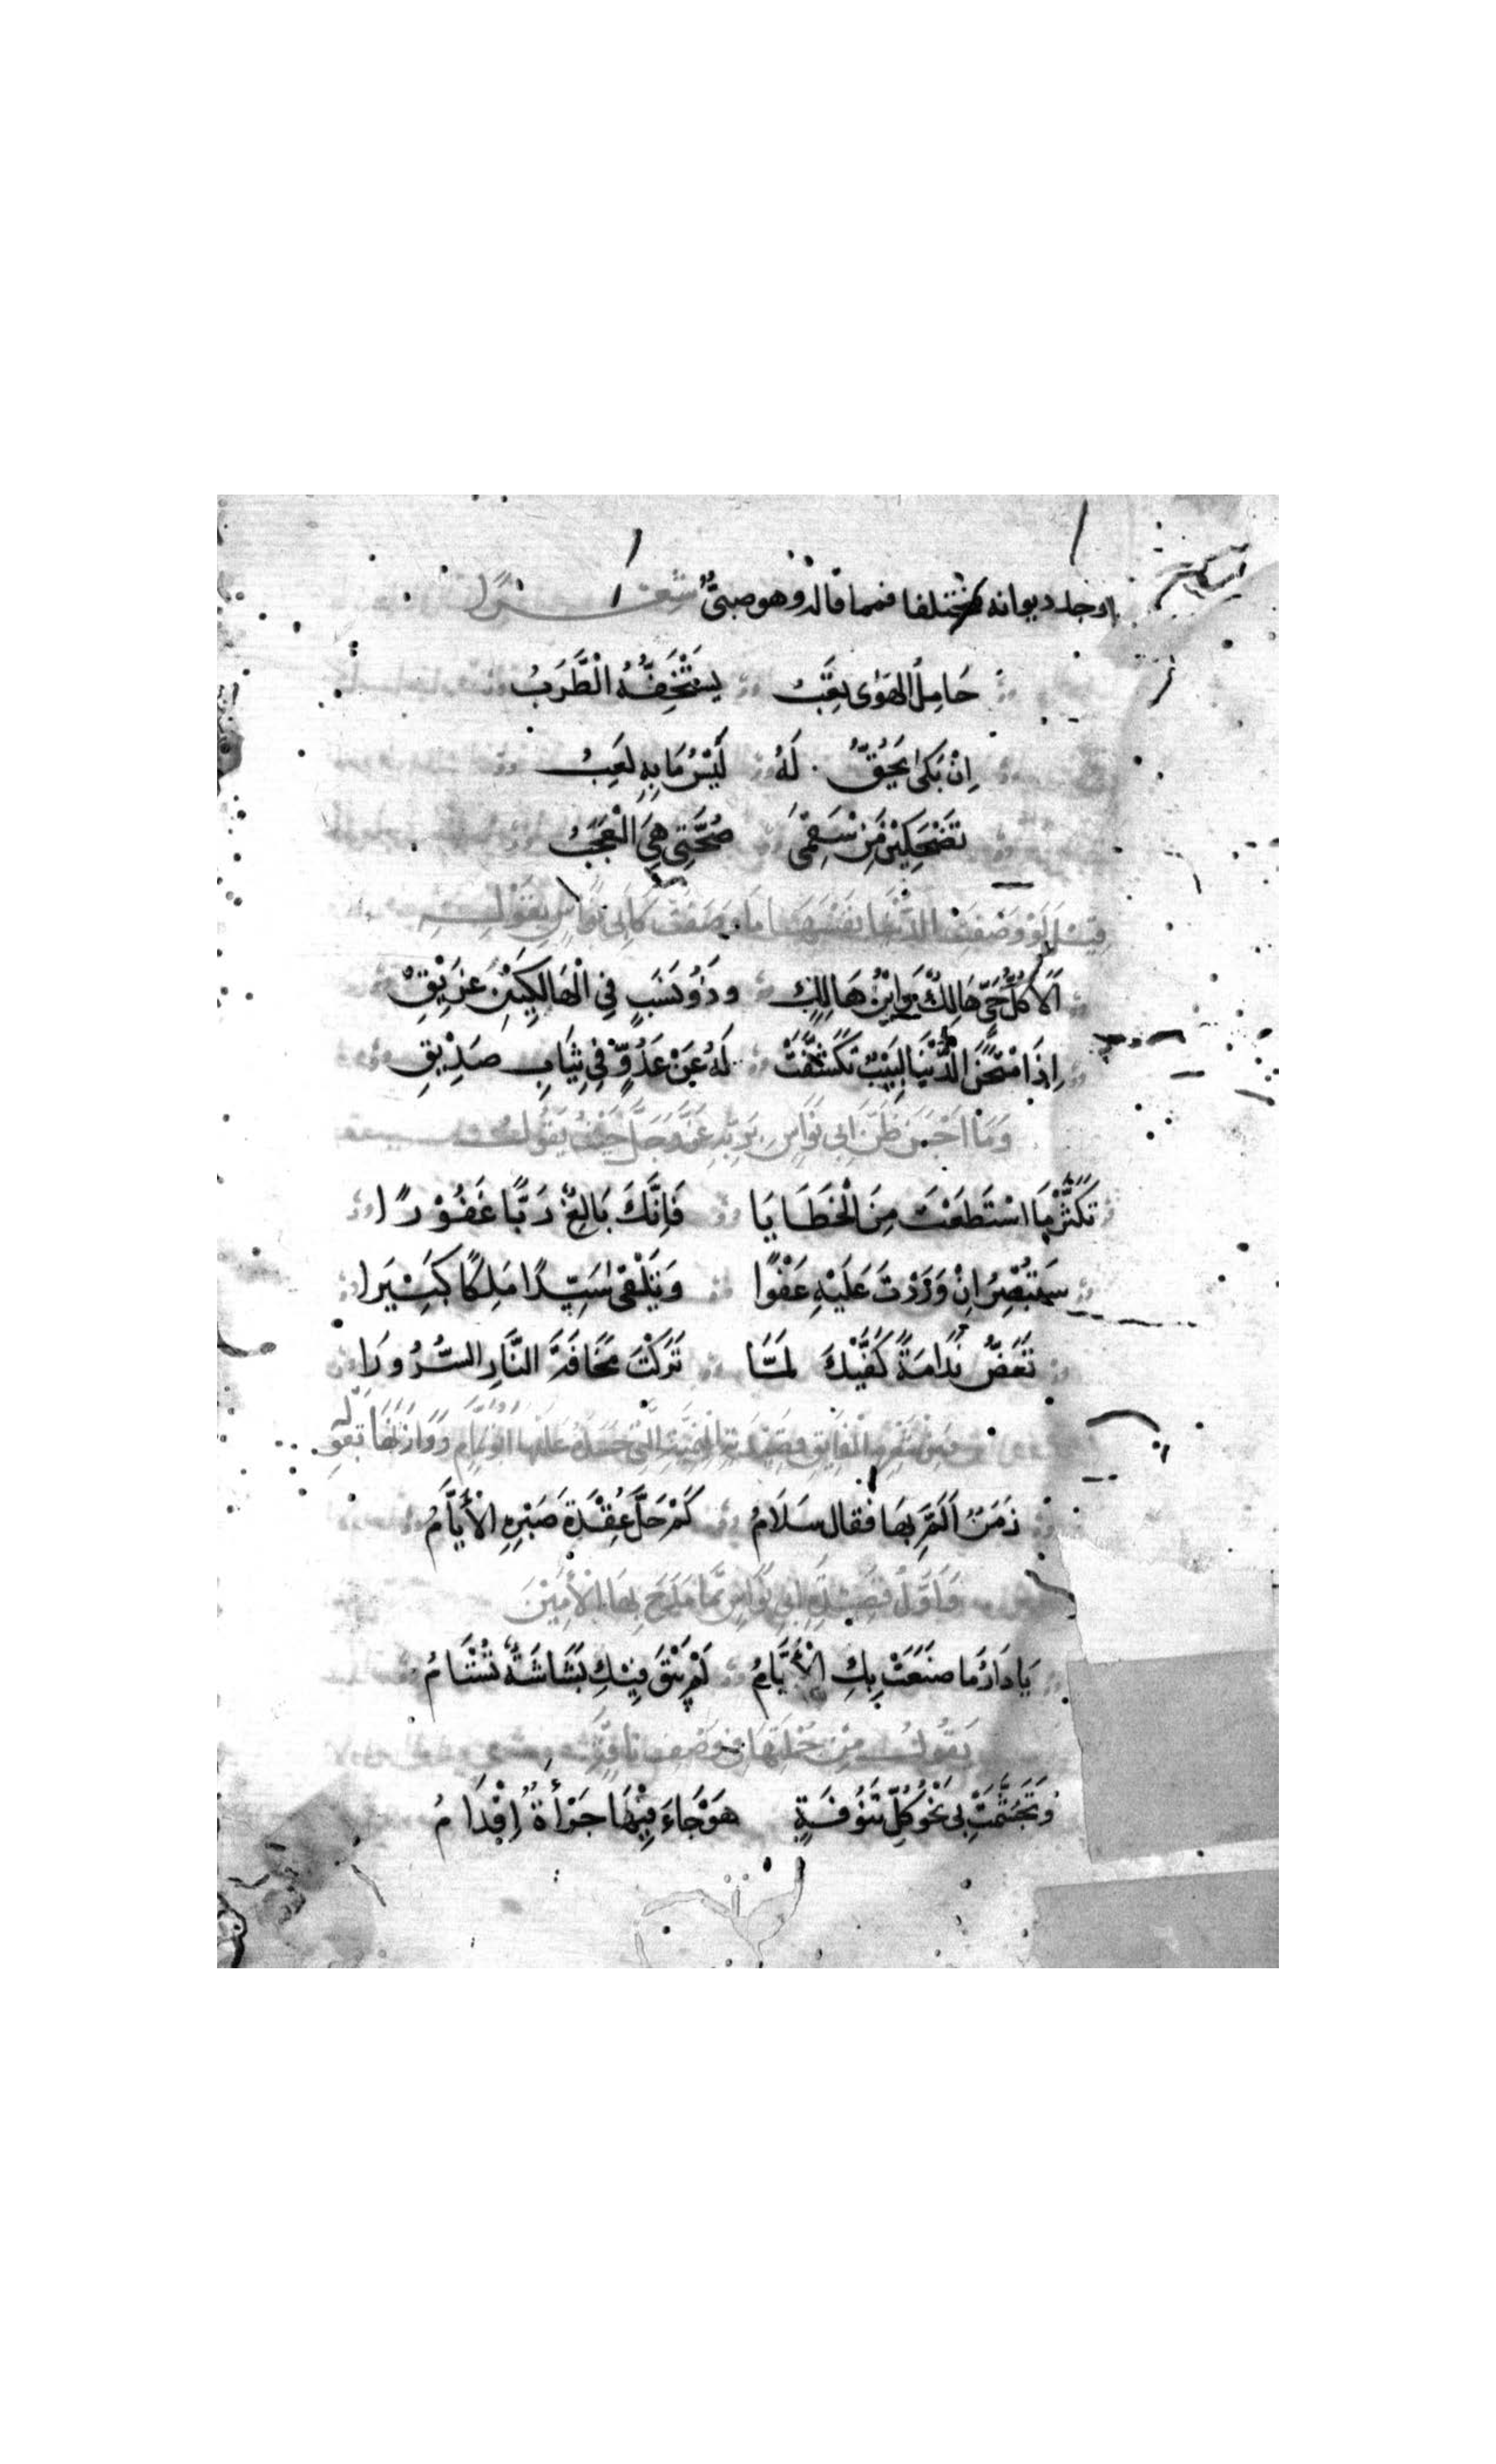 اوجد ديوانه مختلفا فمما قاله وهو صبيٌّ شعرًا
حَامِلُ الهَوٰى تعِبُ يَسْتَخِفُّهُ الْطَّرَبُ
اِنْ بَكىٰ يَحِقُّ لَهُ لَيْسَ مَا بِهِ لَعِبُ
تَضْحَكِيْنَ مِنْ سَقَمْى صُحَّتِى هِىَ الْعَجَبُ
قيل لَوْ وَصَفَتْ الدُّنْيَا نَفْسَهَا مَا وَصَفَتْ كَابى نُوَاسٍ بِقَوْلِهِ
اَلَا كُلُّ حَىّ هَالِكٌ وَابْنُ هَالِكٍ وذُوْ نَسَبٍ فِى الْهَالِكِيْنَ عَرِيْقِ
اِذَا امْتَحَنَ الدُّنْيَا لَبِيْبٌ تَكَشَّفَتْ لَهُ عَنْ عَدُوٍّ فِى ثِيَابِ صَدِيْقِ
وَمَا اَحْسَنَ ظَنَّ اَبِى نُوَاسٍ بِرَبِّهِ عَزَّ وَجَلَّ حَيْثُ يَقُولُ
تَكَثَّرْ مَا اسْتَطَعْتَ مِنَ الْخَطَايَا فَاِنَّكَ بَالِغٌ رَبًّا غَفُوْرًا
سَتُبْصِرُ اِنْ وَرَدْتَ عَلَيْهِ عَفْوًا وَتَلْقٰى سَيِّدًا مَلِكًا كَبِيْرَا
تَعَضُّ نَدَامَةً كَفَّيْكَ لمَّا تَرَكْتَ مَخَافَةَ النَّارِ السُّرُورَا
وَمِنْ شِعْرِهِ الْفَايِقِ قَصِيْدَتِهِ الْمِيْمِيَّةِ الَّتِى عَلَيْهَا ابُو تمَّام وَوَازَنَهَا بقولِه
زَمَنٌ اَلَمَّ بِهَا فَقَال سَلَامُ كَمْ حَلَّ عُقْدَةَ صَبْرِهِ الْأَيَّامُ
وَاَوَّلُ قَصِيْدَةِ اَبِى نُوَاسٍ مما مَدَحَ بِهَا الْأَمِيْنَ
يَا دَارُ مَا صَنَعَتْ بِكِ الْأَيَّامُ لَمْ يَبْقَ فِيْكِ بَشَاشَةٌ تُشْتَامُ
يَقُولُ مِنْ جُمْلَتِهَا فى وَصْفِ نَاقَتِهِ
وَتَجَشَّمَتْ بِى نَحْوَ كُلِّ تَنُوفَةٍ هَوْجَاءَ فِيْهَا جَرْأَةٌ اِقْدَامُ